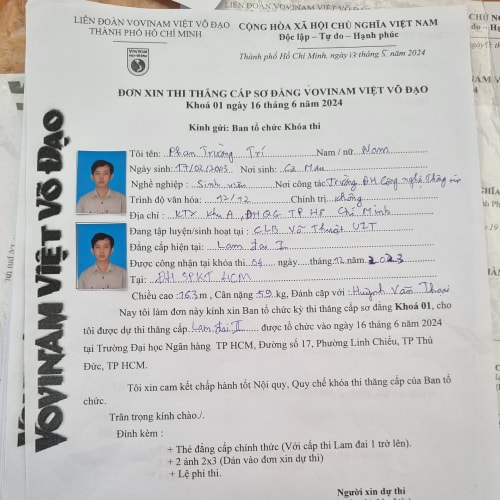 LIÊN ĐOÀN VOVINAM VIỆT VÕ ĐẠO
THÀNH PHỐ HỒ CHÍ MINH
CỘNG HÒA XÃ HỘI CHỦ NGHĨA VIỆT NAM
Độc lập – Tự do – Hạnh phúc
Thành phố Hồ Chí Minh, ngày 13 tháng 5 năm 2024
VOVINAM
VIỆT VÕ ĐẠO
ĐƠN XIN THI THĂNG CẤP SƠ ĐẲNG VOVINAM VIỆT VÕ ĐẠO
Khoá 01 ngày 16 tháng 6 năm 2024
Kính gửi: Ban tổ chức Khóa thi
VOVINAM VIỆT VÕ ĐẠO
Tôi tên: Phan Trường Trí Nam / nữ: Nam
Ngày sinh: 17/02/2003 Nơi sinh: Cà Mau
Nghề nghiệp: Sinh viên Nơi công tác: Trường ĐH Công nghệ Thông tin
Trình độ văn hóa: 12/12 Chính trị: không
Địa chỉ: KTX Khu A, ĐHQG TP Hồ Chí Minh
Đang tập luyện/sinh hoạt tại: CLB Võ Thuật UIT
Đẳng cấp hiện tại: Lam đai I
Được công nhận tại khóa thi: 04 ngày....tháng 12 năm 2023
Tại: ĐH SPKT HCM
Chiều cao: 163 m, Cân nặng: 59 kg, Đánh cặp với: Huỳnh Văn Thoại
Nay tôi làm đơn này kính xin Ban tổ chức kỳ thi thăng cấp sơ đẳng Khoá 01, cho
tôi được dự thi thăng cấp Lam đai II được tổ chức vào ngày 16 tháng 6 năm 2024
tại Trường Đại học Ngân hàng TP HCM, Đường số 17, Phường Linh Chiểu, TP Thủ
Đức, TP HCM.
Tôi xin cam kết chấp hành tốt Nội quy, Quy chế khóa thi thăng cấp của Ban tổ
chức.
Trân trọng kính chào./.
Đính kèm :
+ Thẻ đẳng cấp chính thức (Với cấp thi Lam đai 1 trở lên).
+ 2 ảnh 2x3 (Dán vào đơn xin dự thi)
+ Lệ phí thi.
Người xin dự thi